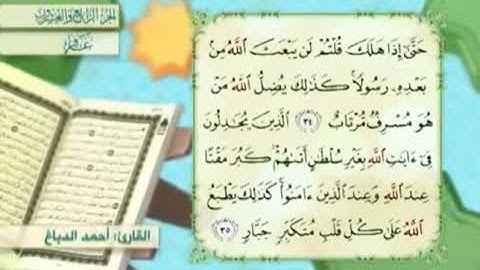 الجزء الرابع والعشرون
سورة غافر
حَتَّىٰٓ إِذَا هَلَكَ قُلْتُمْ لَن يَبْعَثَ ٱللَّهُ مِنۢ
بَعْدِهِۦ رَسُولًا ۚ كَذَٰلِكَ يُضِلُّ ٱللَّهُ مَنْ
هُوَ مُسْرِفٌ مُّرْتَابٌ ٣٤ ٱلَّذِينَ يُجَٰدِلُونَ
فِىٓ ءَايَٰتِ ٱللَّهِ بِغَيْرِ سُلْطَٰنٍ أَتَىٰهُمْ ۖ كَبُرَ مَقْتًا
عِندَ ٱللَّهِ وَعِندَ ٱلَّذِينَ ءَامَنُوا۟ ۚ كَذَٰلِكَ يَطْبَعُ
ٱللَّهُ عَلَىٰ كُلِّ قَلْبِ مُتَكَبِّرٍ جَبَّارٍ ٣٥
القارئ: أحمد الدباغ